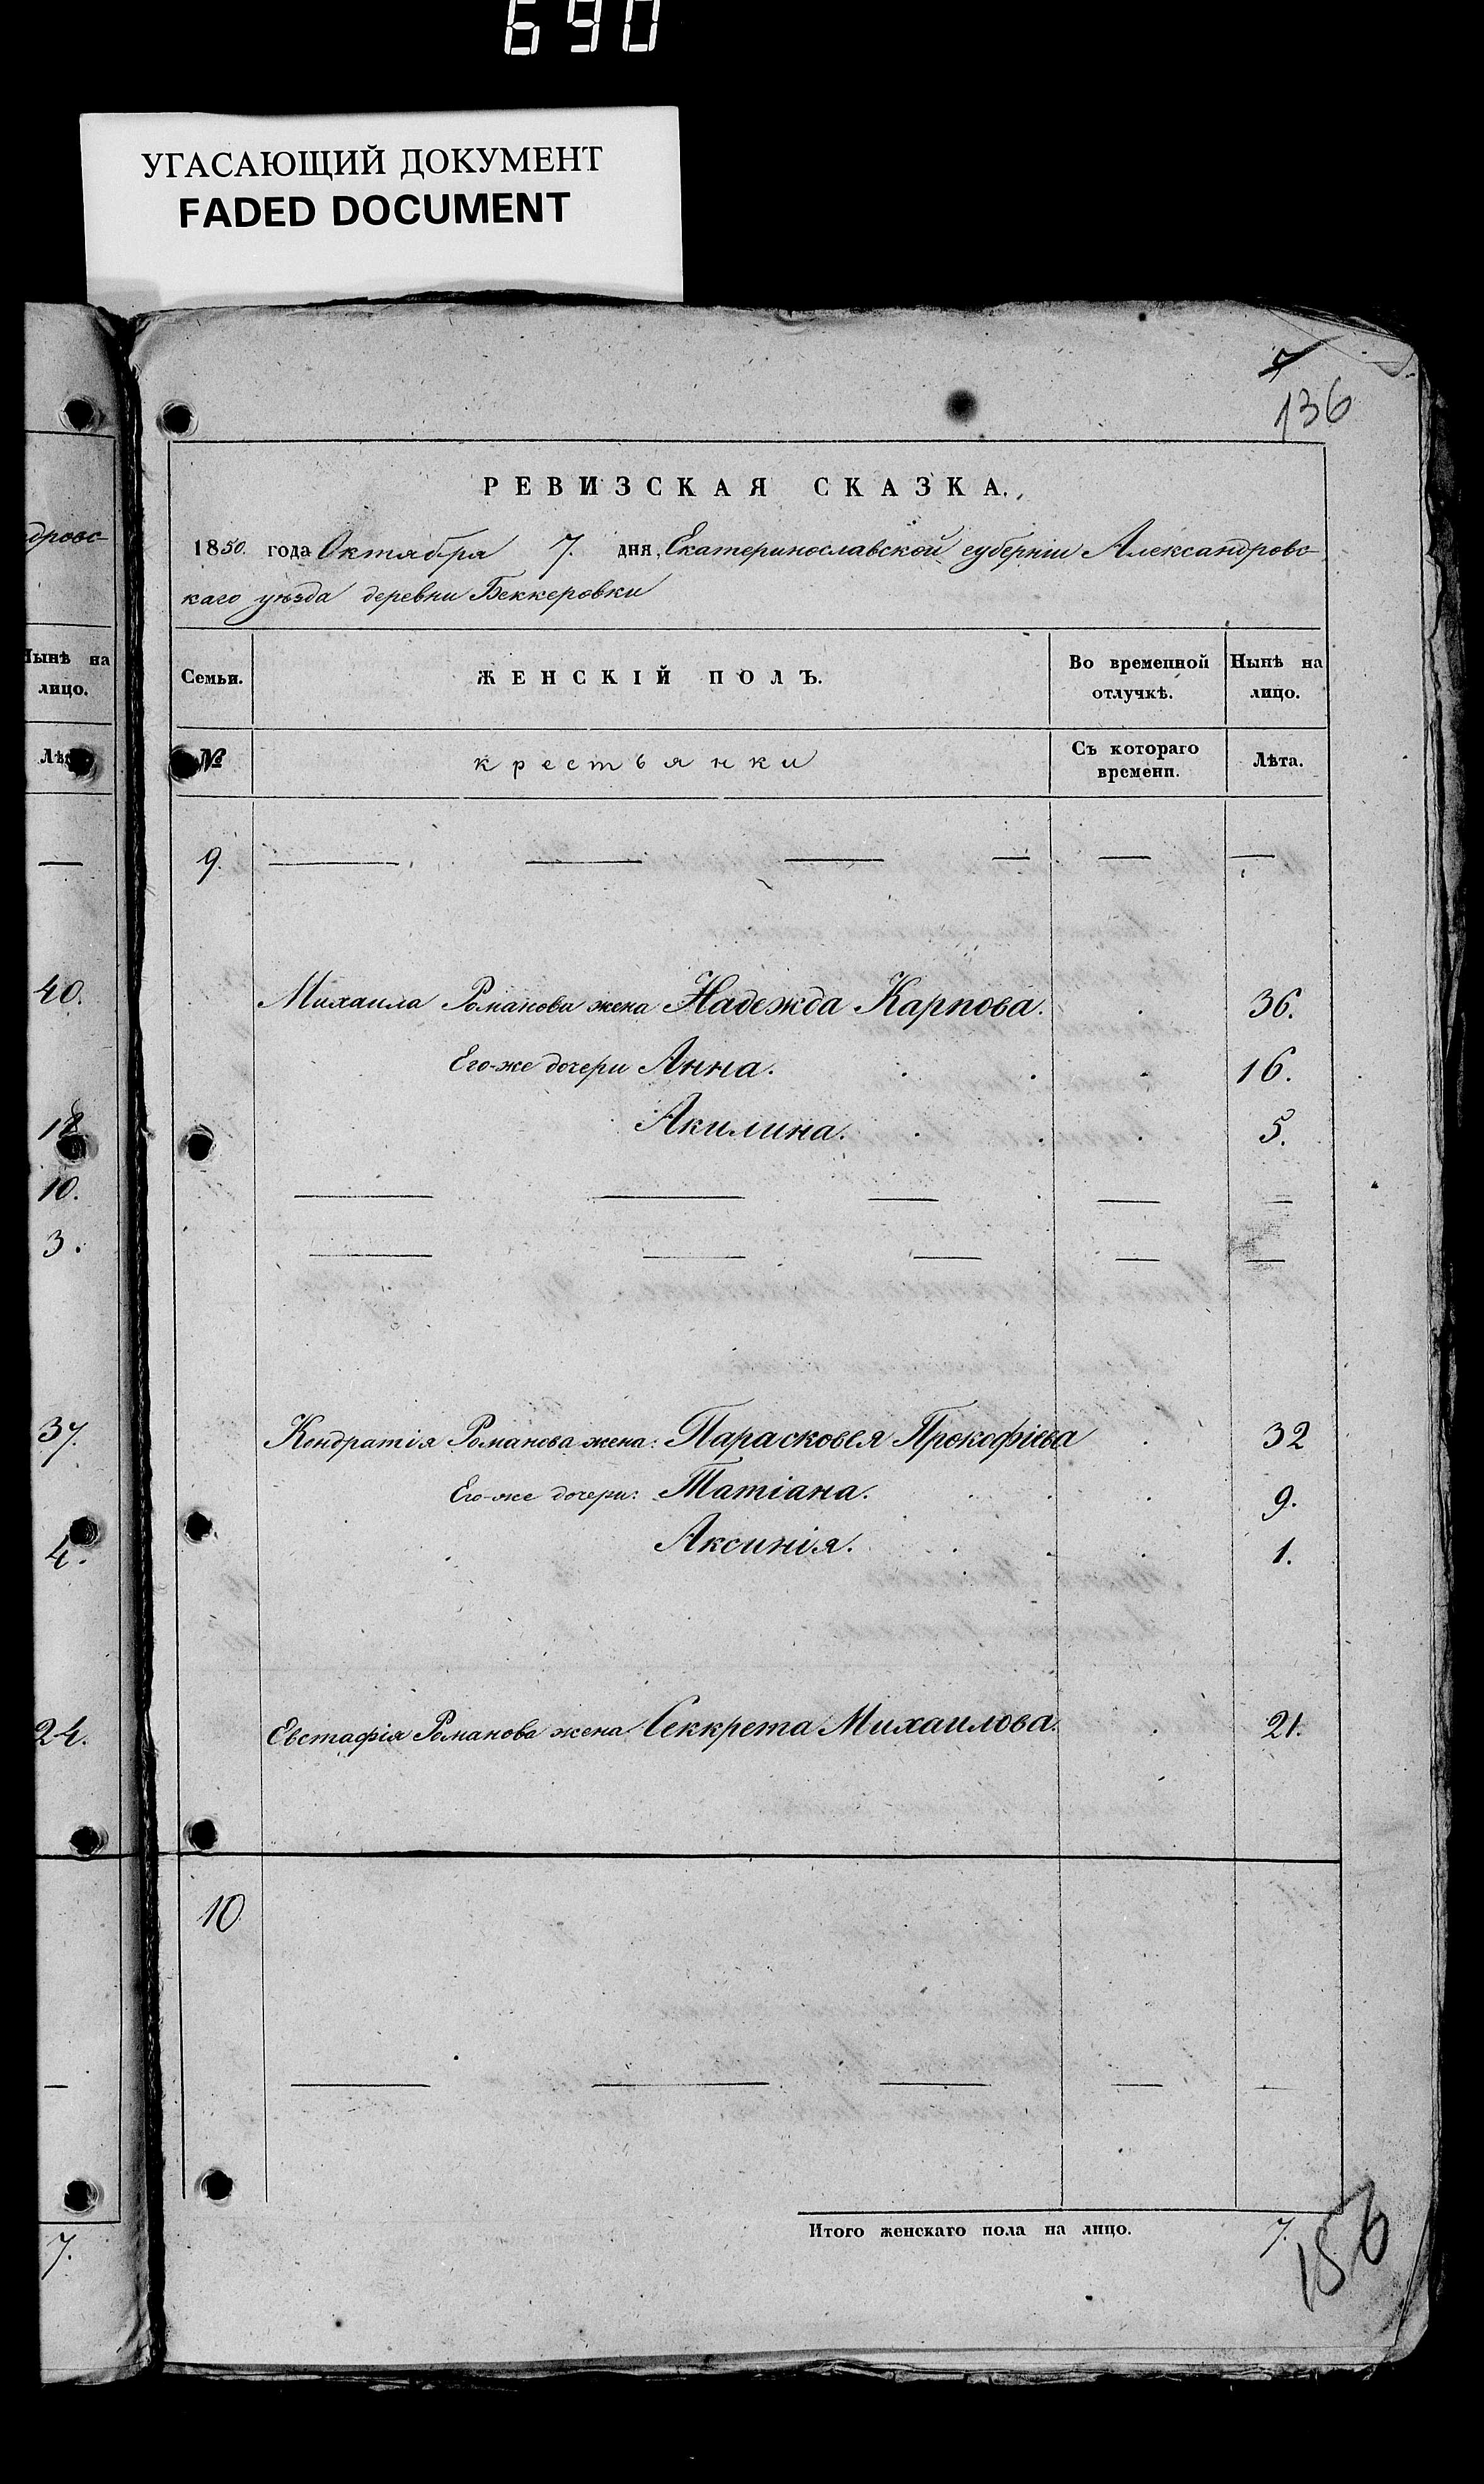 690
УГАСАЮЩИЙ ДОКУМЕНТ
FADED DOCUMENT
7
136
РЕВИЗСКАЯ СКАЗКА.
1850. года Октября 7. дня, Екатеринославской губерніи Александровс-
каго уѣзда деревни Беккеровки
дровс-
Нынѣ на
лицо.
Семьи.
ЖЕНСКІЙ ПОЛЪ.
Во временной
отлучкѣ.
Нынѣ на
лицо.
№
крестьянки
Съ котораго
времени.
Лѣта.
9. — — — — — —
40.
Михаила Романова жена Надежда Карпова. 36.
Его-же дочери Анна. 16.
Акилина. 5.
10.
3.
37.
Кондратія Романова жена: Парасковея Прокофіева 32
Его-же дочери: Татіана. 9.
Аксинія. 1.
4.
24.
Евстафія Романова жена Секкрета Михаилова. 21.
10
Итого женскаго пола на лицо. 7.
7.
156